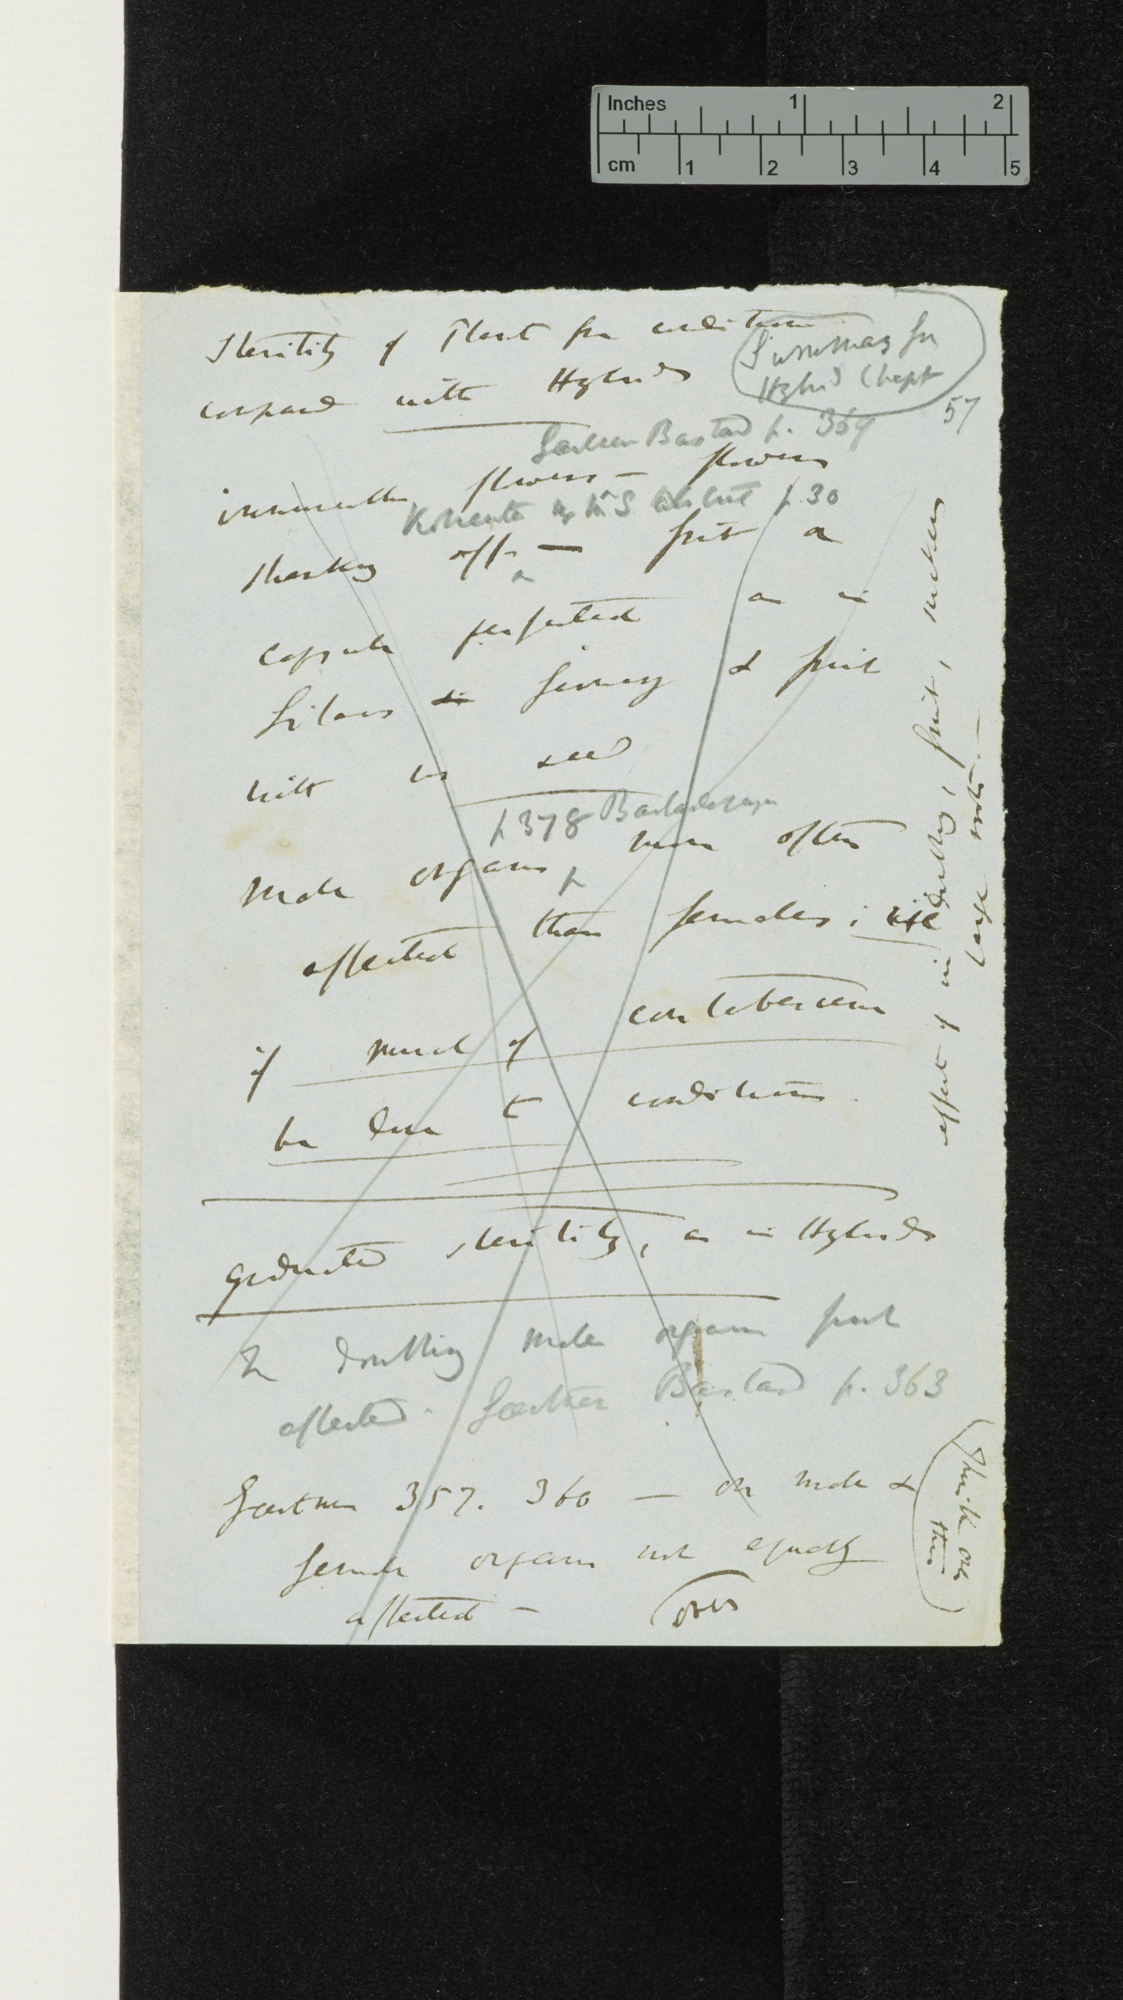 Inches 1 2
cm 1 2 3 4 5
Sterility of Plant from conditions
compared with Hybrids
Summary for
Hybrid Chapt
57
Gaertner Bastard p. 364
flowers — flowers
p. 30
off — fruit or
capsule perfected as in
Lilacs Siberia & fruit
with no seed
p 378 Bastard
Male organs more often
affected than females;
if much of contabescens
be due to conditions.
graduated sterility, as in Hybrids
In doubling male organs first
affected. Gaertner Bastard p. 363
Gaertner 357. 360 — on male &
female organs not equally
affected —
(over
effect of in doubling, fruit, suckers
large roots. —
(Think over
this)